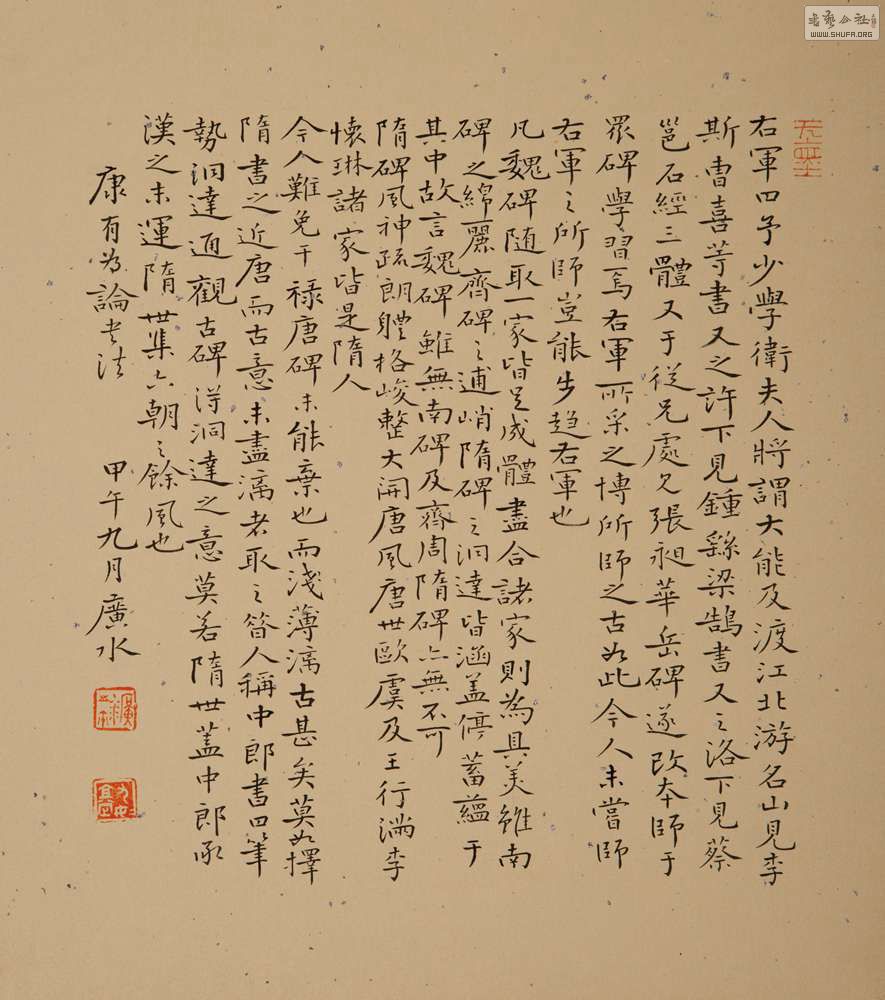 右軍曰予少學衛夫人將謂大能及渡江北游名山見李
斯曹喜等書又之許下見鍾繇梁鵠書又之洛下見蔡
邕石經三體又于從兄處見張昶華岳碑遂改本師于
眾碑學習焉右軍所采之博所師之古如此今人未嘗師
右軍之所師豈能步趨右軍也
凡魏碑随取一家皆足成體盡合諸家則為具美雖南
碑之綿麗齊碑之逋峭隋碑之洞達皆涵蓋停蓄蘊于
其中故言魏碑雖無南碑及齊周隋碑亦無不可
隋碑風神疏朗體格峻整大開唐風唐世歐虞及王行滿李
懷琳諸家皆是隋人
今人難免干禄唐碑未能棄也而淺薄漓古甚矣莫如擇
隋書之近唐而古意未盡漓者取之昔人稱中郎書曰筆
勢洞達通觀古碑得洞達之意莫若隋世蓋中郎承
漢之末運隋世集六朝之餘風也
康有為論書法 甲午九月廣水
書藝公社
WWW.SHUFA.ORG